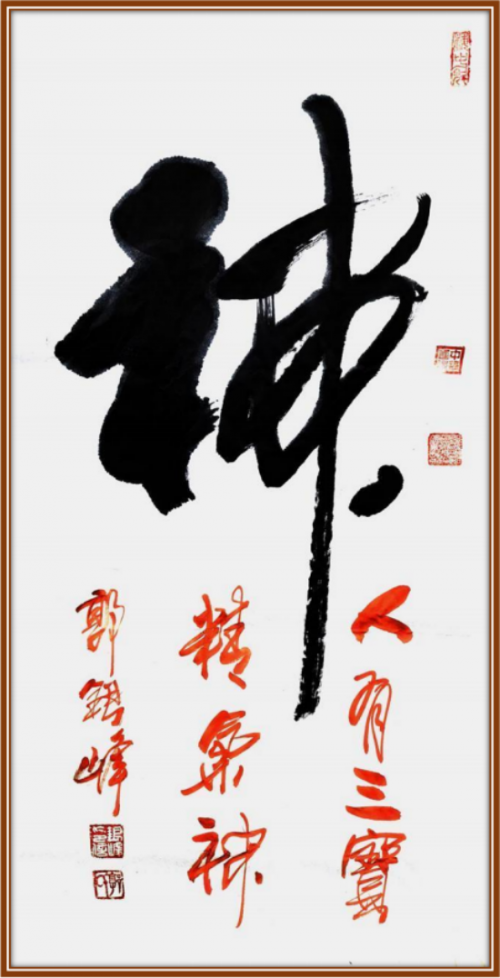 神
人有三寳
精氣神
郭錫峰